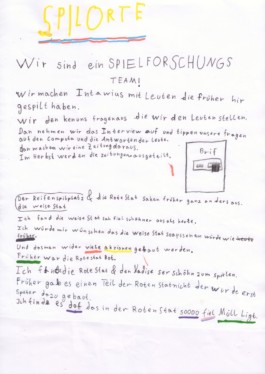 SPILORTE
Wir sind ein SPIELFORSCHUNGS
TEAM!
Wir machen Intawius mit Leuten die früher hir
gespilt haben.
Wir den benous fragen aus die wir den Leuten stellen.
Dan nehmen wir das Interview auf und tippen unsere fragen
auf den Computa und die Antworten den Leute.
Dan machen wir eine Zeitung daraus.
Im Herbst werden die Zeitungen ausgeteilt.
Brif
Der Seifenspitzplatz & die Rote Stat sahen früher ganz anders aus.
die weise Stat
Ich fand die weise Stat fiel schöner als als heute.
Ich würde mir wünschen das die weise Stat
früher.
Und das man wider viele aktionen gebaut werden.
Früher war die Rote Stat Rot.
Ich finde die Rote Stat & den Nadise ser schön zum spilen.
Früher gab es einen Teil der Roten Stat nicht der wurde erst
später dazu gebaut.
Ich finde es dof das in der Roten Stat soooo fiel Müll ligt.